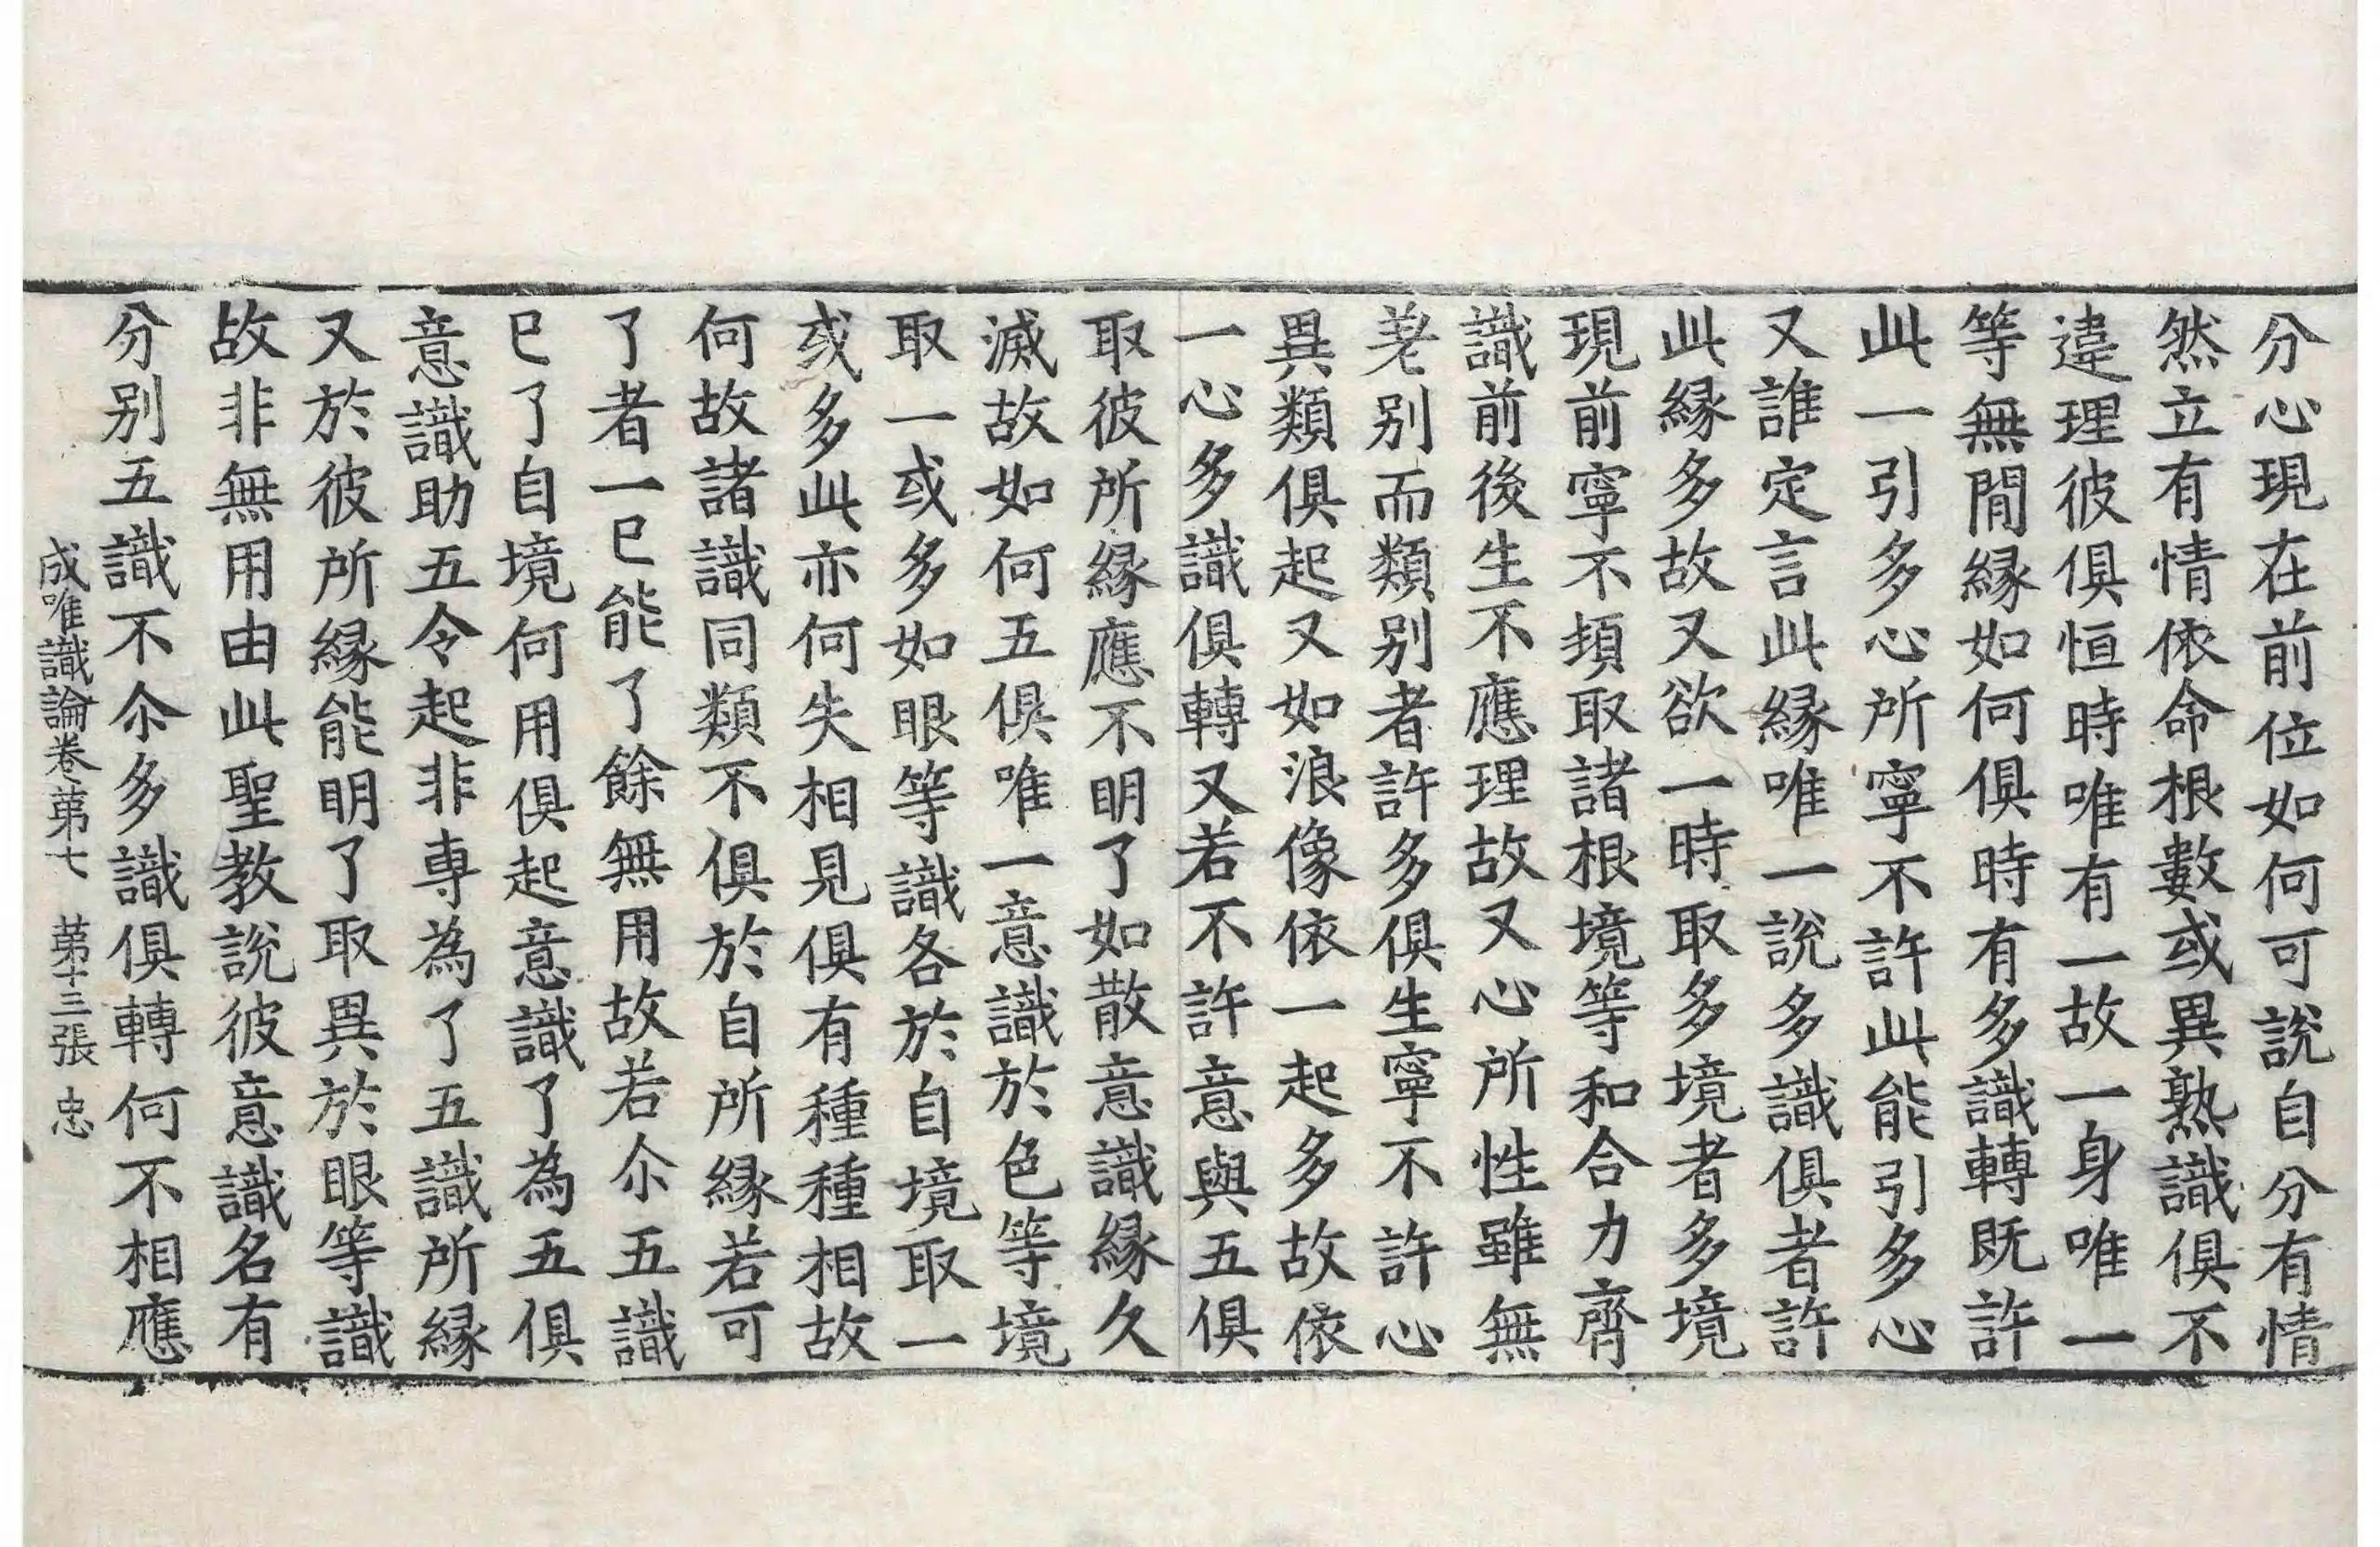 分心現在前位如何可說自分有情
然立有情依命根數或異熟識俱不
違理彼俱恒時唯有一故一身唯一
等無間緣如何俱時有多識轉既許
此一引多心所寧不許此能引多心
又誰定言此緣唯一說多識俱者許
此緣多故又欲一時取多境者多境
現前寧不頓取諸根境等和合力齊
識前後生不應理故又心所性雖無
差别而類别者許多俱生寧不許心
異類俱起又如浪像依一起多故依
一心多識俱轉又若不許意與五俱
取彼所緣應不明了如散意識緣久
滅故如何五俱唯一意識於色等境
取一或多如眼等識各於自境取一
或多此亦何失相見俱有種種相故
何故諸識同類不俱於自所緣若可
了者一已能了餘無用故若尒五識
已了自境何用俱起意識了為五俱
意識助五令起非専為了五識所緣
又於彼所緣能明了取異於眼等識
故非無用由此聖教說彼意識名有
分别五識不尒多識俱轉何不相應
成唯識論卷第七 第十三張 忠